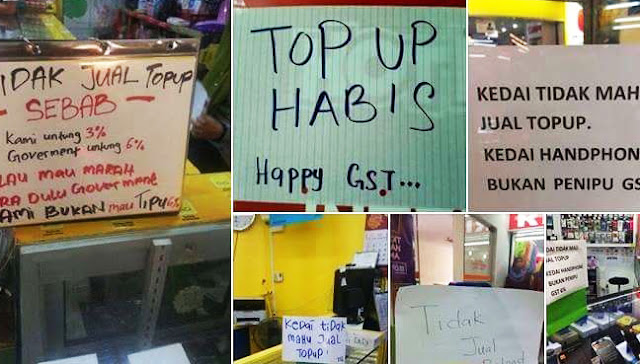 TIDAK JUAL TOPUP
SEBAB
Kami untung 3%
Goverment untung 6%
LAU MAU MARAH
RA DULU GOVERMENT
AMI BUKAN mau TIPU
TOP UP
HABIS
Happy GST...
KEDAI TIDAK MAH
JUAL TOPUP.
KEDAI HANDPHON
BUKAN PENIPU GS
Kedai tiDak
MAHU JUAL
TOPUP!
Tidak
Jual
Reload
KEDAI TIDAK MAHU
JUAL TOPUP
KEDAI HANDPHONE
BUKAN PENIPU
GST 6%